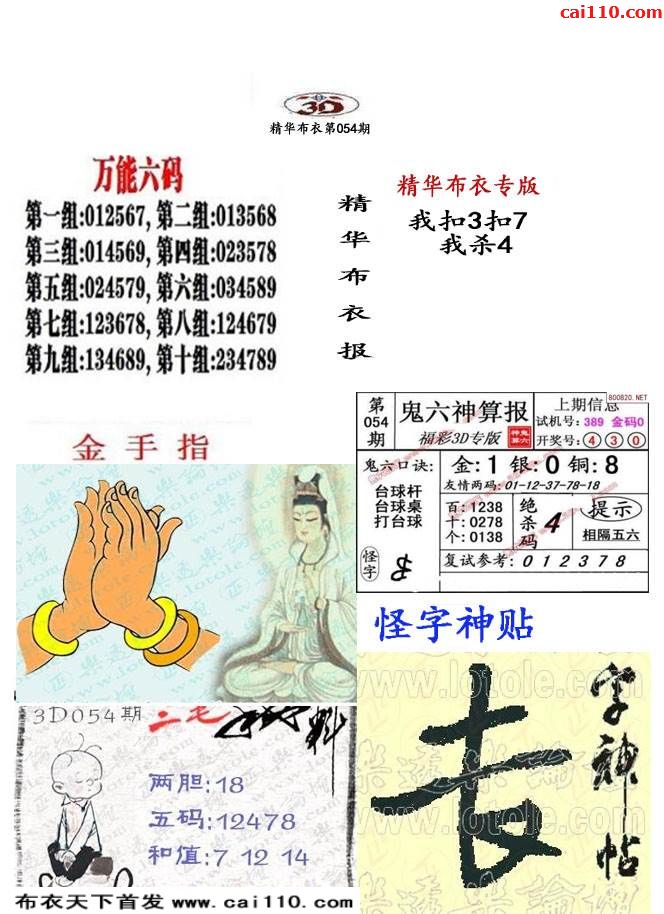 cai110.com
3D
精华布衣第054期
万能六码
第一组:012567, 第二组:013568
第三组:014569, 第四组:023578
第五组:024579, 第六组:034589
第七组:123678, 第八组:124679
第九组:134689, 第十组:234789
精华布衣报
精华布衣专版
我扣3扣7
我杀4
金手指
第054期
鬼六神算报
福彩3D专版
上期信息
800820.NET
试机号: 389 金码0
开奖号: 4 3 0
鬼六口诀:
台球杆
台球桌
打台球
金:1 银:0 铜:8
友情两码:01-12-37-78-18
百:1238
十:0278
个:0138
绝杀码
4
提示
相隔五六
怪字
复试参考: 0 1 2 3 7 8
怪字神贴
www.lotole.com
字神帖
3D054期
二毛
两胆:18
五码:12478
和值:7 12 14
布衣天下首发 www.cai110.com